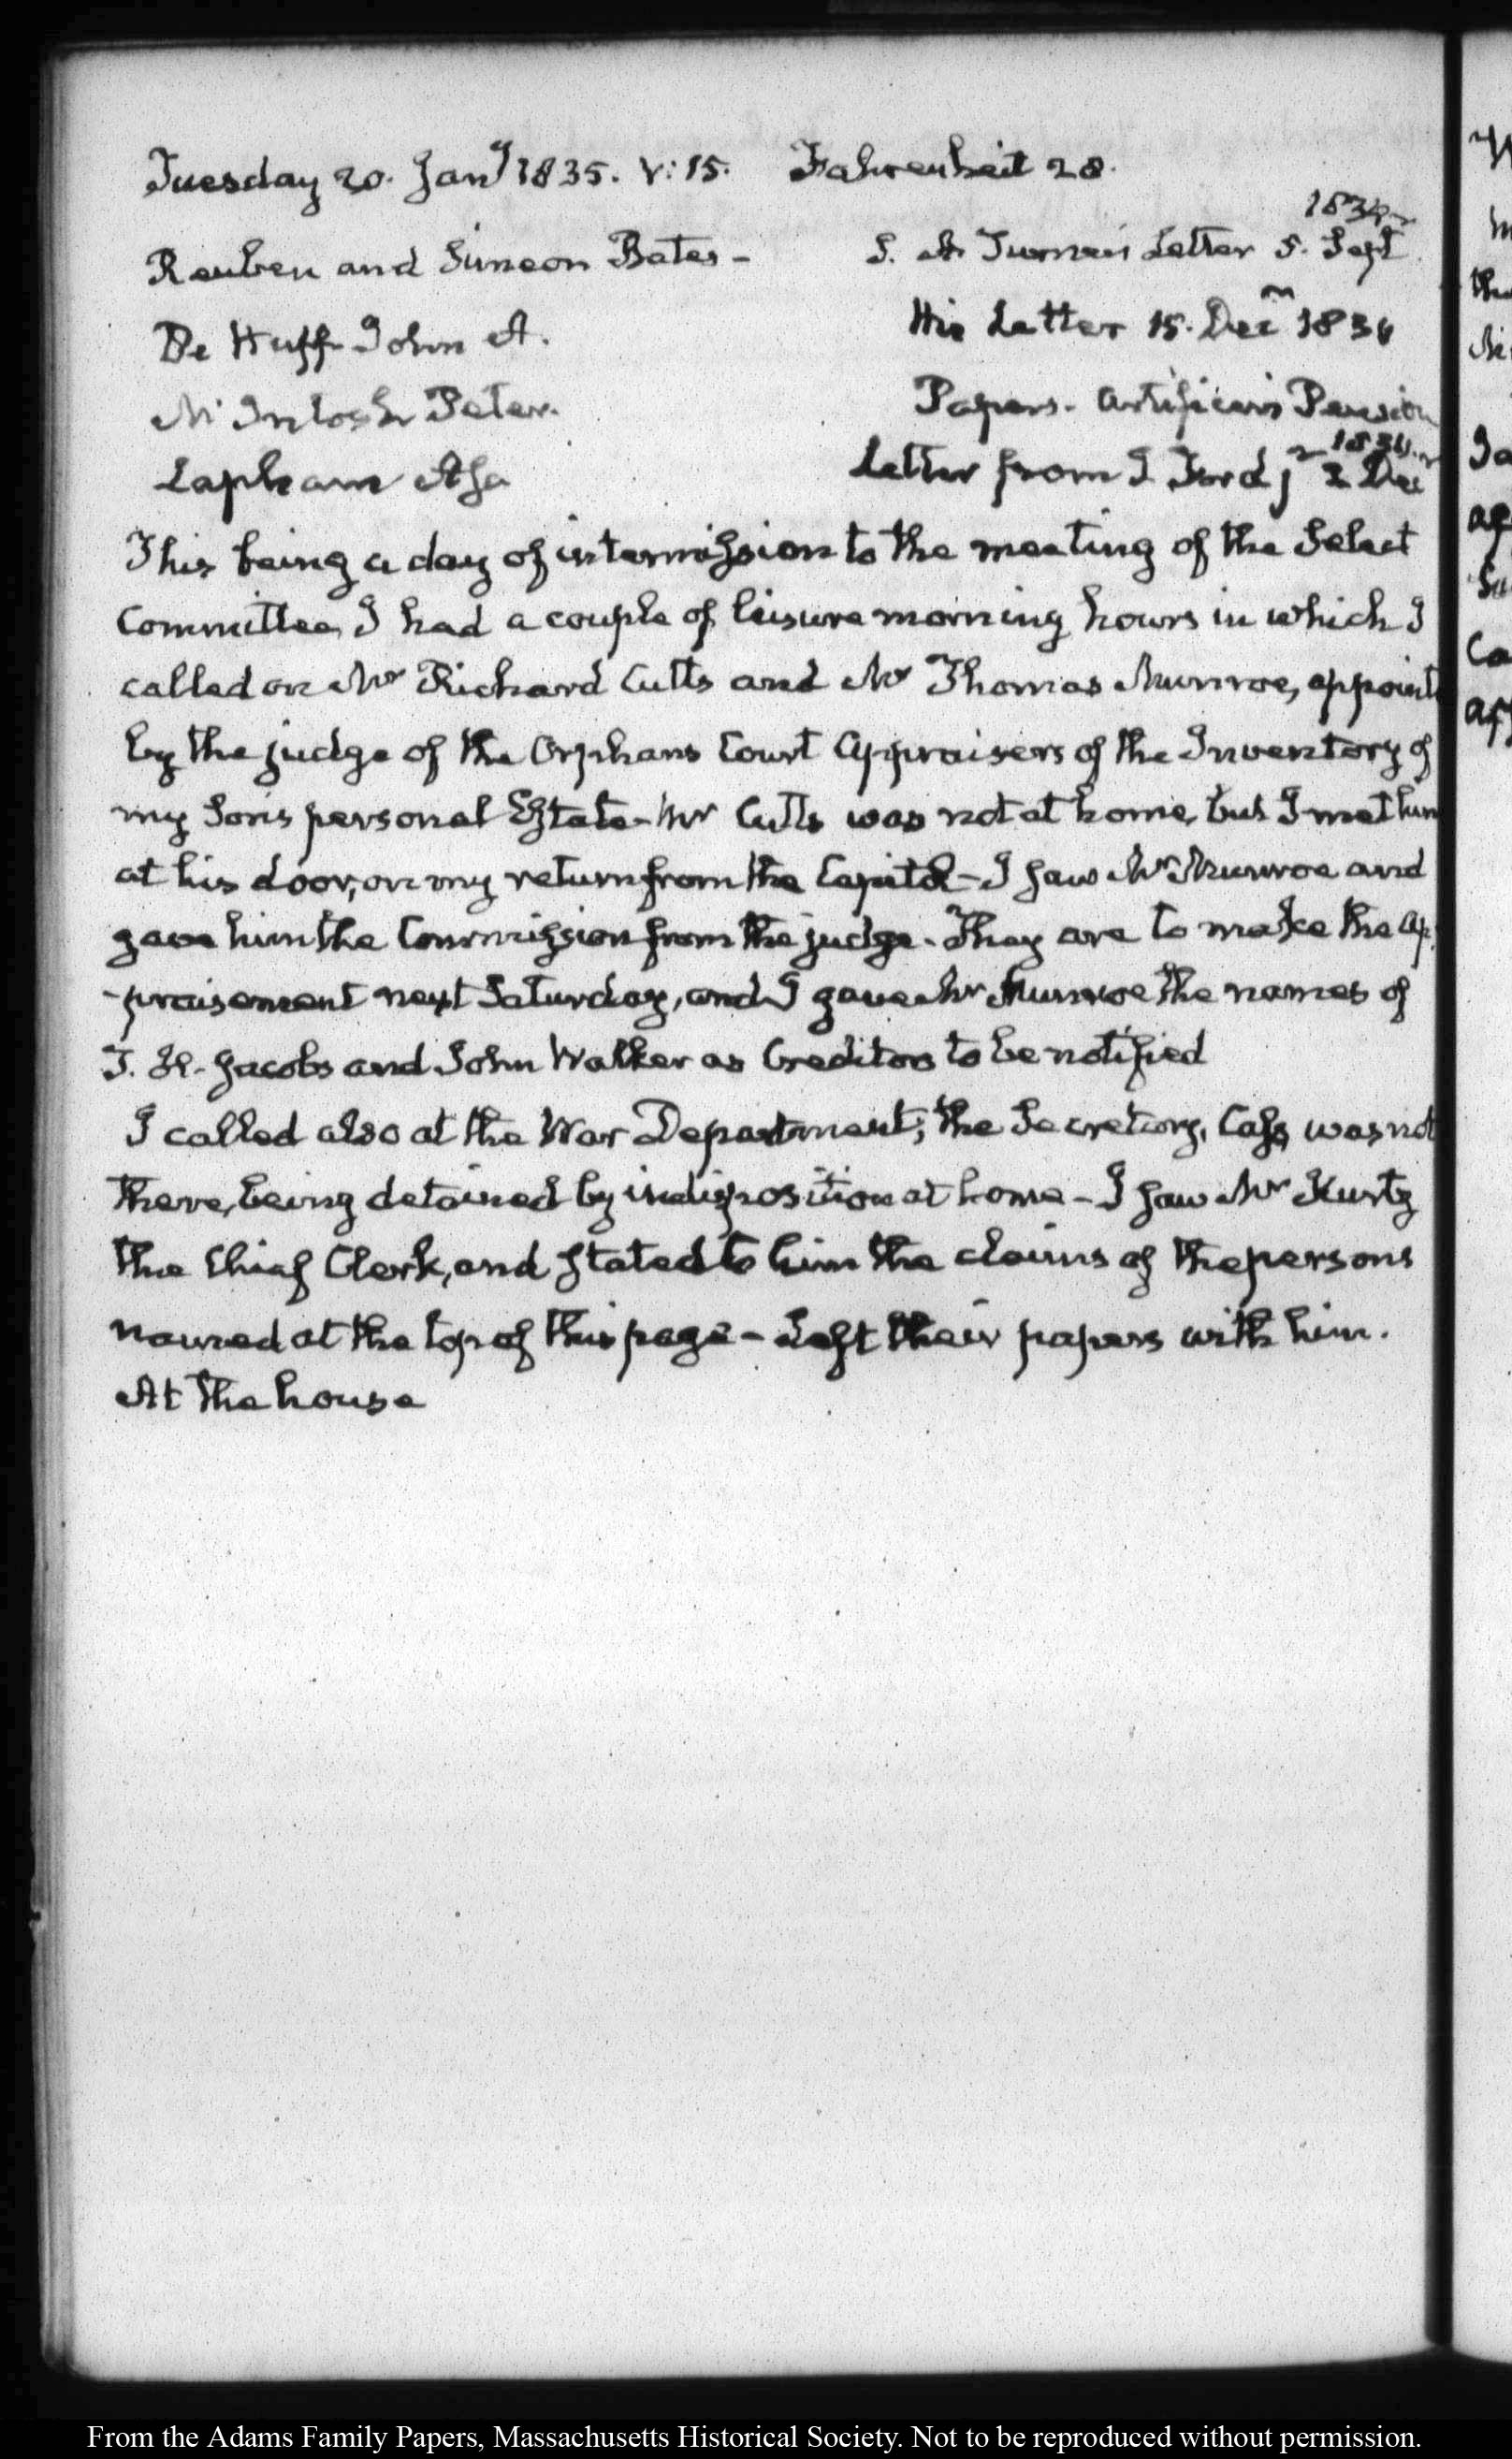 Tuesday 20. Jany 1835. V:15. Fahrenheit 28.
Reuben and Simeon Bates - S. A. Turner's Letter 5. Sept 1834
De Huff John A. His Letter 15. Decr 1834
McIntosh Peter. Papers. Artificer's Pension
Lapham Asa Letter from I Ford jr 2 Decr 1834
This being a day of intermission to the meeting of the Select
Committee, I had a couple of leisure morning hours in which I
called on Mr Richard Cutts and Mr Thomas Munroe, appoint
by the judge of the Orphans Court Appraisers of the Inventory of
my Son's personal Estate - Mr Cutts was not at home, but I met him
at his door, on my return from the Capitol - I saw Mr Munroe and
gave him the Commission from the judge. They are to make the ap
-praisement next Saturday, and I gave Mr Munroe the names of
J. H. Jacobs and John Walker as Creditors to be notified
I called also at the War Department; the Secretary, Cass, was not
there, being detained by indisposition at home - I saw Mr Kurtz
the Chief Clerk, and stated to him the claims of the persons
named at the top of this page - Left their papers with him.
At the house
From the Adams Family Papers, Massachusetts Historical Society. Not to be reproduced without permission.